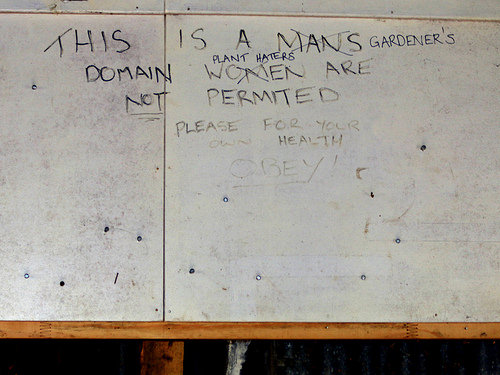 THIS IS A MANS GARDENER'S
PLANT HATERS
DOMAIN WOMEN ARE
NOT PERMITED
PLEASE FOR YOUR
OWN HEALTH
OBEY!